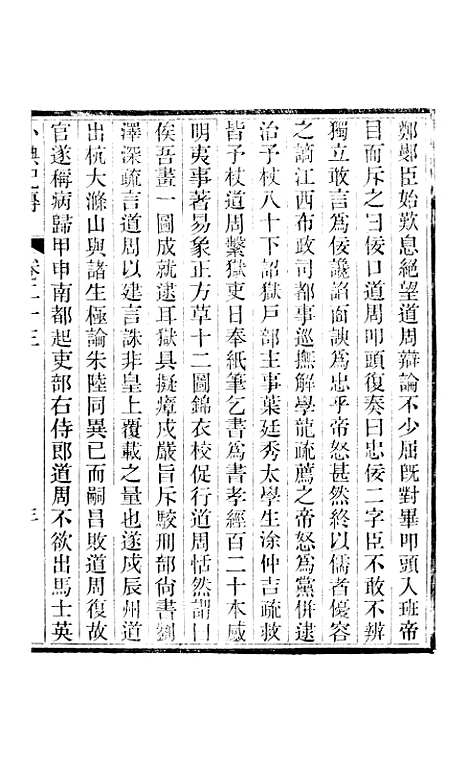 鄭鄤臣始歎息絕望道周辯論不少屈旣對畢叩頭入班帝
目而斥之曰佞口道周叩頭復奏曰忠佞二字臣不敢不辨
獨立敢言爲佞讒諂面諛爲忠乎帝怒甚然終以儒者優容
之謫江西布政司都事巡撫解學龍疏薦之帝怒爲黨併逮
治予杖八十下詔獄戶部主事葉廷秀太學生涂仲吉疏救
皆予杖道周繫獄吏日奉紙筆乞書爲書孝經百二十本感
明夷事著易象正方草十二圖錦衣校促行道周恬然謂曰
俟吾畫一圖成就逮耳獄具擬瘴戍嚴旨斥駮刑部尙書劉
澤深疏言道周以建言誅非皇上覆載之量也遂戍辰州道
出杭大滌山與諸生極論朱陸同異已而嗣昌敗道周復故
官遂稱病歸甲申南都起吏部右侍郎道周不欲出馬士英
小腆紀傳 卷二十三 三